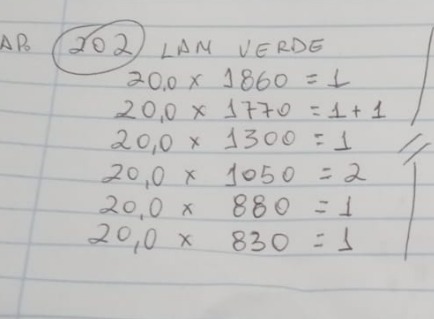 AP. 202 LAM VERDE
20,0 x 1860 = 1
20,0 x 1770 = 1 + 1
20,0 x 1300 = 1
20,0 x 1050 = 2
20,0 x 880 = 1
20,0 x 830 = 1